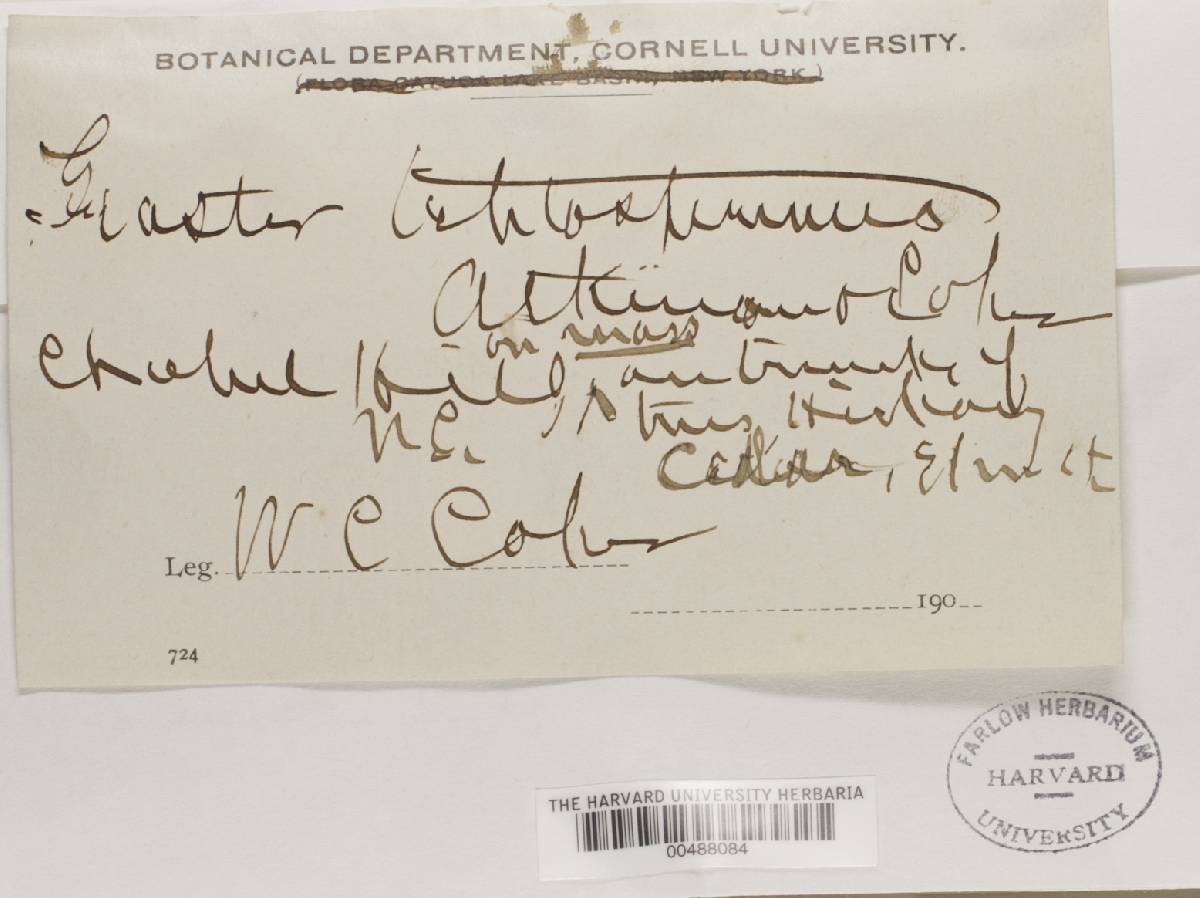 BOTANICAL DEPARTMENT, CORNELL UNIVERSITY.
(FLORA CAYUGA LAKE BASIN, NEW YORK.)
Geaster leptospermus
Atkinson & Coker
on mass
Chapel Hill, on trunks of
N.C. Hickory
Cedar, Elm etc
Leg. W C Coker
190
724
FARLOW HERBARIUM
HARVARD
UNIVERSITY
THE HARVARD UNIVERSITY HERBARIA
00488084